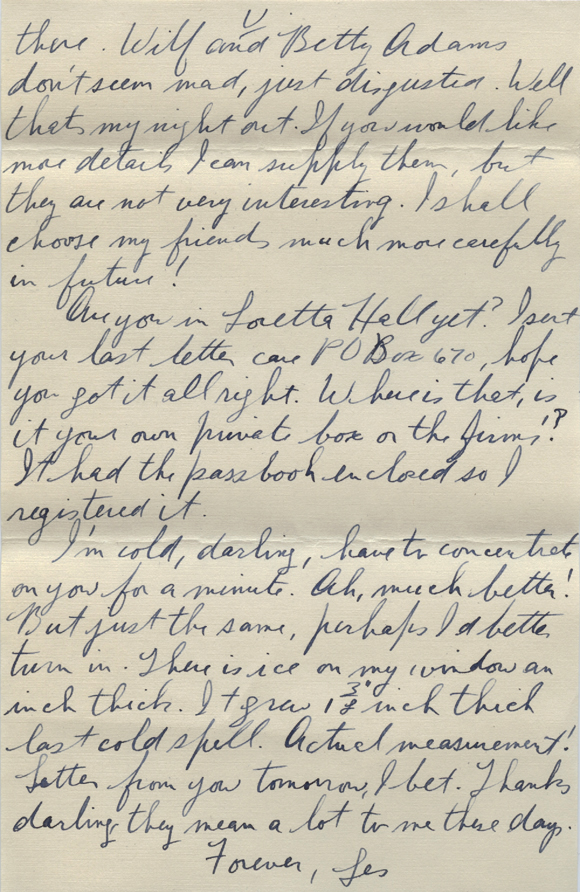 there. Wilf and Betty Adams
don't seem mad, just disgusted. Well
thats my night out. If you would like
more details I can supply them, but
they are not very interesting. I shall
choose my friends much more carefully
in future!
Are you in Loretta Hall yet? I sent
your last letter care P O Box 670, hope
you got it all right. Where is that, is
it your own private box or the firms'?
It had the passbook enclosed so I
registered it.
I'm cold, darling, have to concentrate
on you for a minute. Ah, much better!
But just the same, perhaps I'd better
turn in. There is ice on my window an
inch thick. It grew 1 3/8" inch thick
last cold spell. Actual measurement!
Letter from you tomorrow, I bet. Thanks
darling, they mean a lot to me these days.
Forever, Les